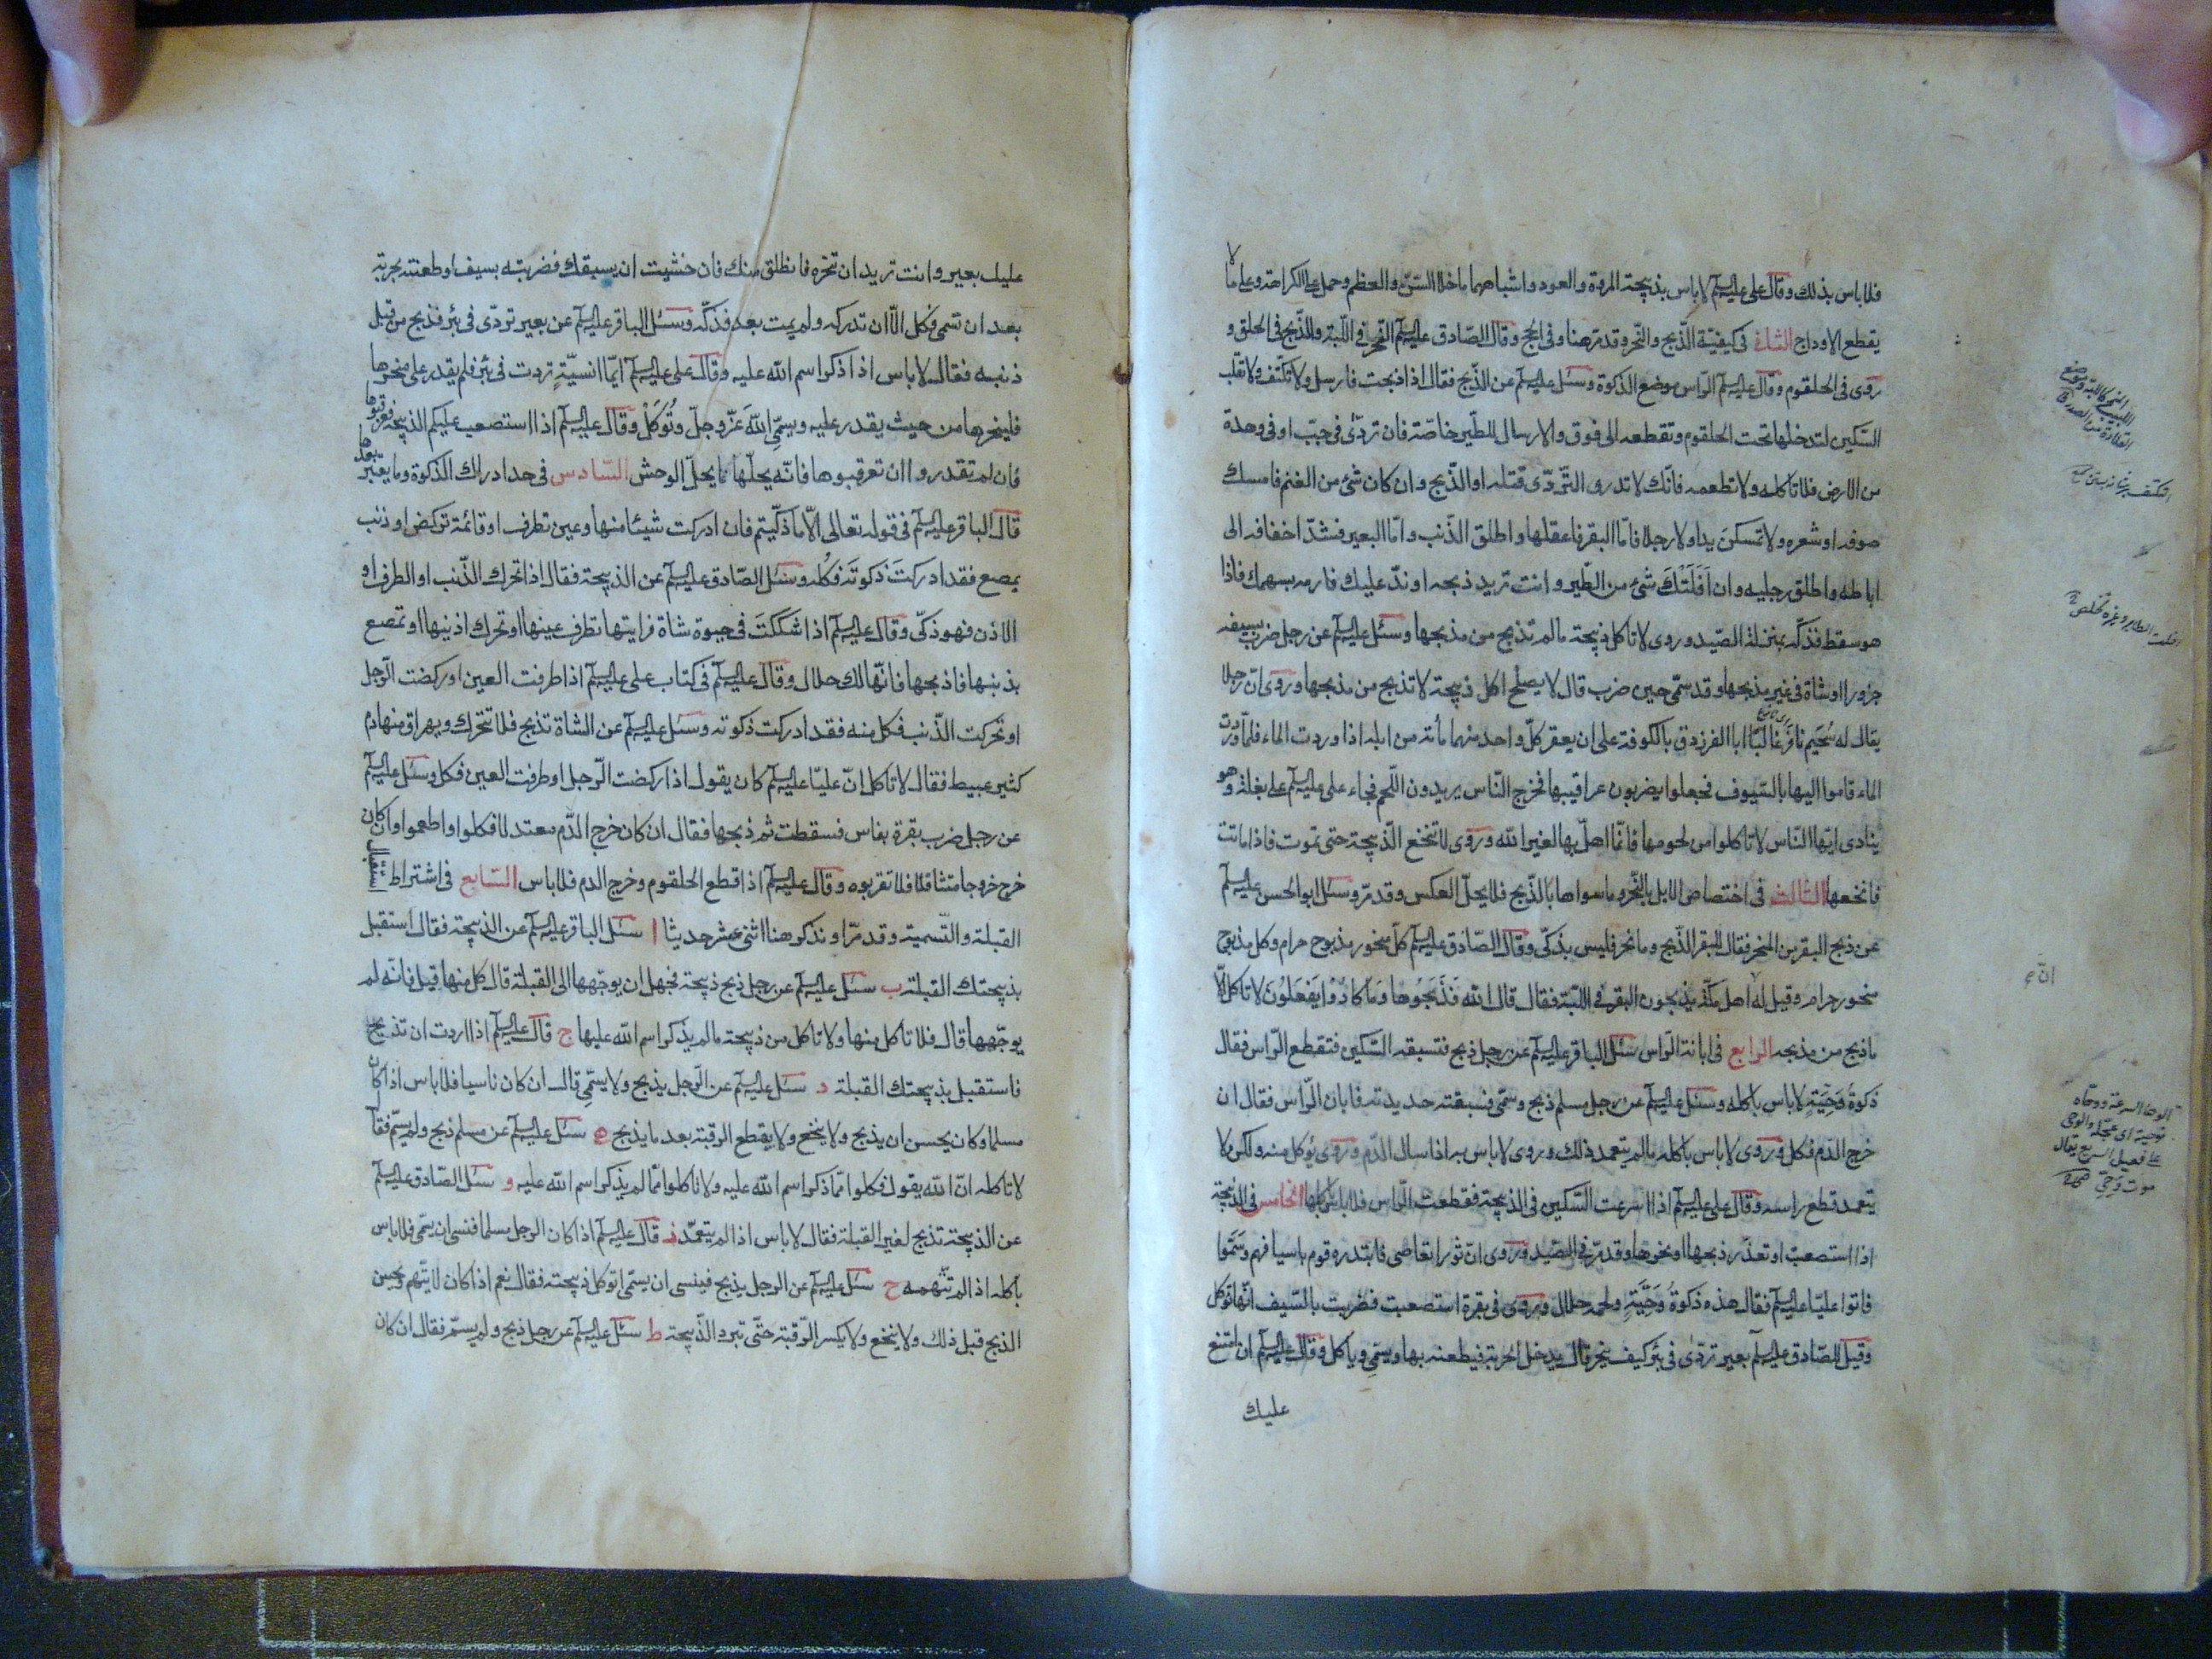 فلا باس بذلك وقال على عليه السلم لا باس بذبيحة المروة والعود واشباههما ما خلا السّنّ والعظم وحمل على الكراهة وعلى ما لا
يقطع الاوداج الثانى فى كيفيّة الذّبح والنّحر وقد مرّ هنا وفى الحج وقال الصّادق عليه السلم النّحر فى اللّبّة والذّبح فى الحلق و
روى فى الحلقوم وقال عليه السلم الرّاس موضع الذكوة وسئل عليه السلم عن الذّبح فقال اذا ذبحت فارسل ولا تكتّف ولا تقلّب
السّكين لتدخلها تحت الحلقوم وتقطعه الى فوق والارسال للطّير خاصّة فان تردّى فى جبّ او فى وهدة
من الارض فلا تاكله ولا تطعمه فانّك لا تدرى التّردّى قتله او الذّبح وان كان شئ من الغنم فامسك
صوفه او شعره ولا تمسكنّ يدا ولا رجلا فامّا البقر فاعقلها واطلق الذّنب وامّا البعير فشدّ اخفافه الى
اباطه واطلق رجليه وان اَفلَتَكَ شئ من الطّير وانت تريد ذبحه او ندّ عليك فارمه بسهمك فاذا
هو سقط فذكّه بمنزلة الصّيد وروى لا تاكل ذبيحة ما لم تذبح من مذبحها وسئل عليه السلم عن رجل ضرب بسيفه
جزورا او شاة فى غير مذبحها وقد سمّى حين ضرب قال لا يصلح اكل ذبيحة لا تذبح من مذبحها وروى انّ رجلا
يقال له سُحَيم نافر غالبًا ابا الفرزدق بالكوفة على ان يعقر كلّ واحد منهما مأئة من ابله اذا وردت الماء فلمّا وردت
الماء قاموا اليها بالسّيوف فجعلوا يضربون عراقيبها فخرج النّاس يريدون اللّحم فجاء على عليه السلم على بغلة وهو
ينادى ايّها النّاس لا تاكلوا من لحومها فانّما اهلّ بها لغير الله وروى لا تنخع الذّبيحة حتى تموت فاذا ماتت
فانخعها الثالث فى اختصاص الابل بالنّحر وما سواها بالذّبح فلا يحلّ العكس وقد مرّ وسئل ابو الحسن عليه السلم
عن ذبح البقر من المنحر فقال للبقر الذّبح وما نحر فليس بذكّى وقال الصّادق عليه السلم كلّ منحور مذبوح حرام وكل مذبوح
منحور حرام وقيل له اهل مكّة يذبحون البقر فى اللّبّة فقال قال الله فَذَبَحُوها وَما كادُوا يَفعَلُونَ لا تاكل الّا
ما ذبح من مذبحه الرابع فى ابانة الرّاس سئل الباقر عليه السلم عن رجل ذبح فتسبقه السّكين فتقطع الرّاس فقال
ذكوةٌ وَحِيّةٍ لا باس باكله وسئل عليه السلم عن رجل مسلم ذبح وسمّى فسبقته حديدته فابان الرّاس فقال ان
خرج الدّم فكل وروى لا باس باكله ما لم يتعمد ذلك وروى لا باس به اذا سال الدّم وروى يؤكل منه ولكن لا
يتعمد قطع راسه وقال على عليه السلم اذا اسرعت السّكين فى الذبيحة فقطعت الرّاس فلا باس باكلها الخامس فى الذبيحة
اذا استصعب او تعذّر ذبحها او نحرها وقد مرّ فى الصّيد وروى انّ ثورا تعاصى فابتدره قوم باسيافهم وسَمَّوا
فاتوا عليّا عليه السلم فقال هذه ذكوةٌ وَحِيَّةٍ ولحمه حلال وروى فى بقرة استصعبت فضربت بالسّيف انّها تؤكل
وقيل للصّادق عليه السلم بعير تردّى فى بئر كيف ينحر قال يدخل الحربة فيطعنه بها ويسمّى وياكل وقال عليه السلم ان امتنع
عليك
انّ
الوحا السرعة ووحّاه
توحية اى عجّله والوحى
على فعيل السريع يقال
موت وَحِىّ
عليك بعير وانت تريد ان تنحره فانطلق منك فان خشيت ان يسبقك فضربته بسيف او طعنته بحربة
بعد ان تسمى فكل الّا ان تدركه ولم يمت بعد فذكّه وسئل الباقر عليه السلم عن بعير تردّى فى بئر فذبح من قبل
ذنبه فقال لا باس اذا ذكر اسم الله عليه وقال على عليه السلم ايّما انسيّةٍ تردت فى بئر فلم يقدر على منحرها
فلينحرها من حيث يقدر عليه ويسمّى اللهَ عَزَّ وجلّ وتُؤكَلْ وقال عليه السلم اذا استصعب عليكم الذبيحة فعرقبوها
فان لم تقدروا ان تعرقبوها فانّه يحلّها ما يحلّ الوحش السّادس فى حد ادراك الذكوة وما يعتبر بعدها
قال الباقر عليه السلم فى قوله تعالى الّا ما ذكّيتم فان ادركت شيئا منها وعين تطرف او قائمة تركض او ذنب
يمصع فقد ادركتَ ذكوتَه فكُله وسئل الصّادق عليه السلم عن الذبيحة فقال اذا تحرك الذّنب او الطرف او
الاذن فهو ذكّى وقال عليه السلم اذا شككتَ فى حيوة شاة فرايتها تطرف عينها او تحرك اذنيها او تمصع
بذنبها فاذبحها فانّها لك حلال وقال عليه السلم فى كتاب على عليه السلم اذا طرفت العين او ركضت الرّجل
او تحركت الذّنب فكل منه فقد ادركت ذكوته وسئل عليه السلم عن الشاة تذبح فلا تتحرك ويهراق منها دم
كثير عبيط فقال لا تاكل انّ عليّا عليه السلم كان يقول اذا ركضت الرّجل او طرفت العين فكل وسئل عليه السلم
عن رجل ضرب بقرة بفاس فسقطت ثم ذبحها فقال ان كان خرج الدّم معتدلا فكلوا واطعموا وان كان
خرج خروجا متثاقلا فلا تقربوه وقال عليه السلم اذا قطع الحلقوم وخرج الدم فلا باس السّابع فى اشتراط استقبال
القبلة والتّسمية وقد مرّا ونذكر هنا اثنى عشر حديثا ا سئل الباقر عليه السلم عن الذبيحة فقال استقبل
بذبيحتك القبلة ب سئل عليه السلم عن رجل ذبح ذبيحة فجهل ان يوجّهها الى القبلة قال كل منها قيل فانّه لم
يوجّهها قال فلا تاكل منها ولا تاكل من ذبيحة ما لم يذكر اسم الله عليها ج قال عليه السلم اذا اردت ان تذبح
فاستقبل بذبيحتك القبلة د سئل عليه السلم عن الرّجل يذبح ولا يسمّى قال ان كان ناسيا فلا باس اذا كان
مسلما وكان يحسن ان يذبح ولا ينخع ولا يقطع الرقبة بعد ما يذبح ه سئل عليه السلم عن مسلم ذبح ولم يسمّ فقال
لا تاكله انّ الله يقول فكلوا ممّا ذكر اسم الله عليه ولا تاكلوا ممّا لم يذكر اسم الله عليه و سئل الصّادق عليه السلم
عن الذبيحة تذبح لغير القبلة فقال لا باس اذا لم يتعمّد ز قال عليه السلم اذا كان الرجل مسلما فنسى ان يسمّى فلا باس
باكله اذا لم تتّهمه ح سئل عليه السلم عن الرجل يذبح فينسى ان يسمّى اتؤكل ذبيحته فقال نعم اذا كان لا يتّهم ويحسن
الذبح قبل ذلك ولا ينخع ولا يكسر الرّقبة حتّى تبرد الذّبيحة ط سئل عليه السلم عن رجل ذبح ولم يسمّ فقال ان كان